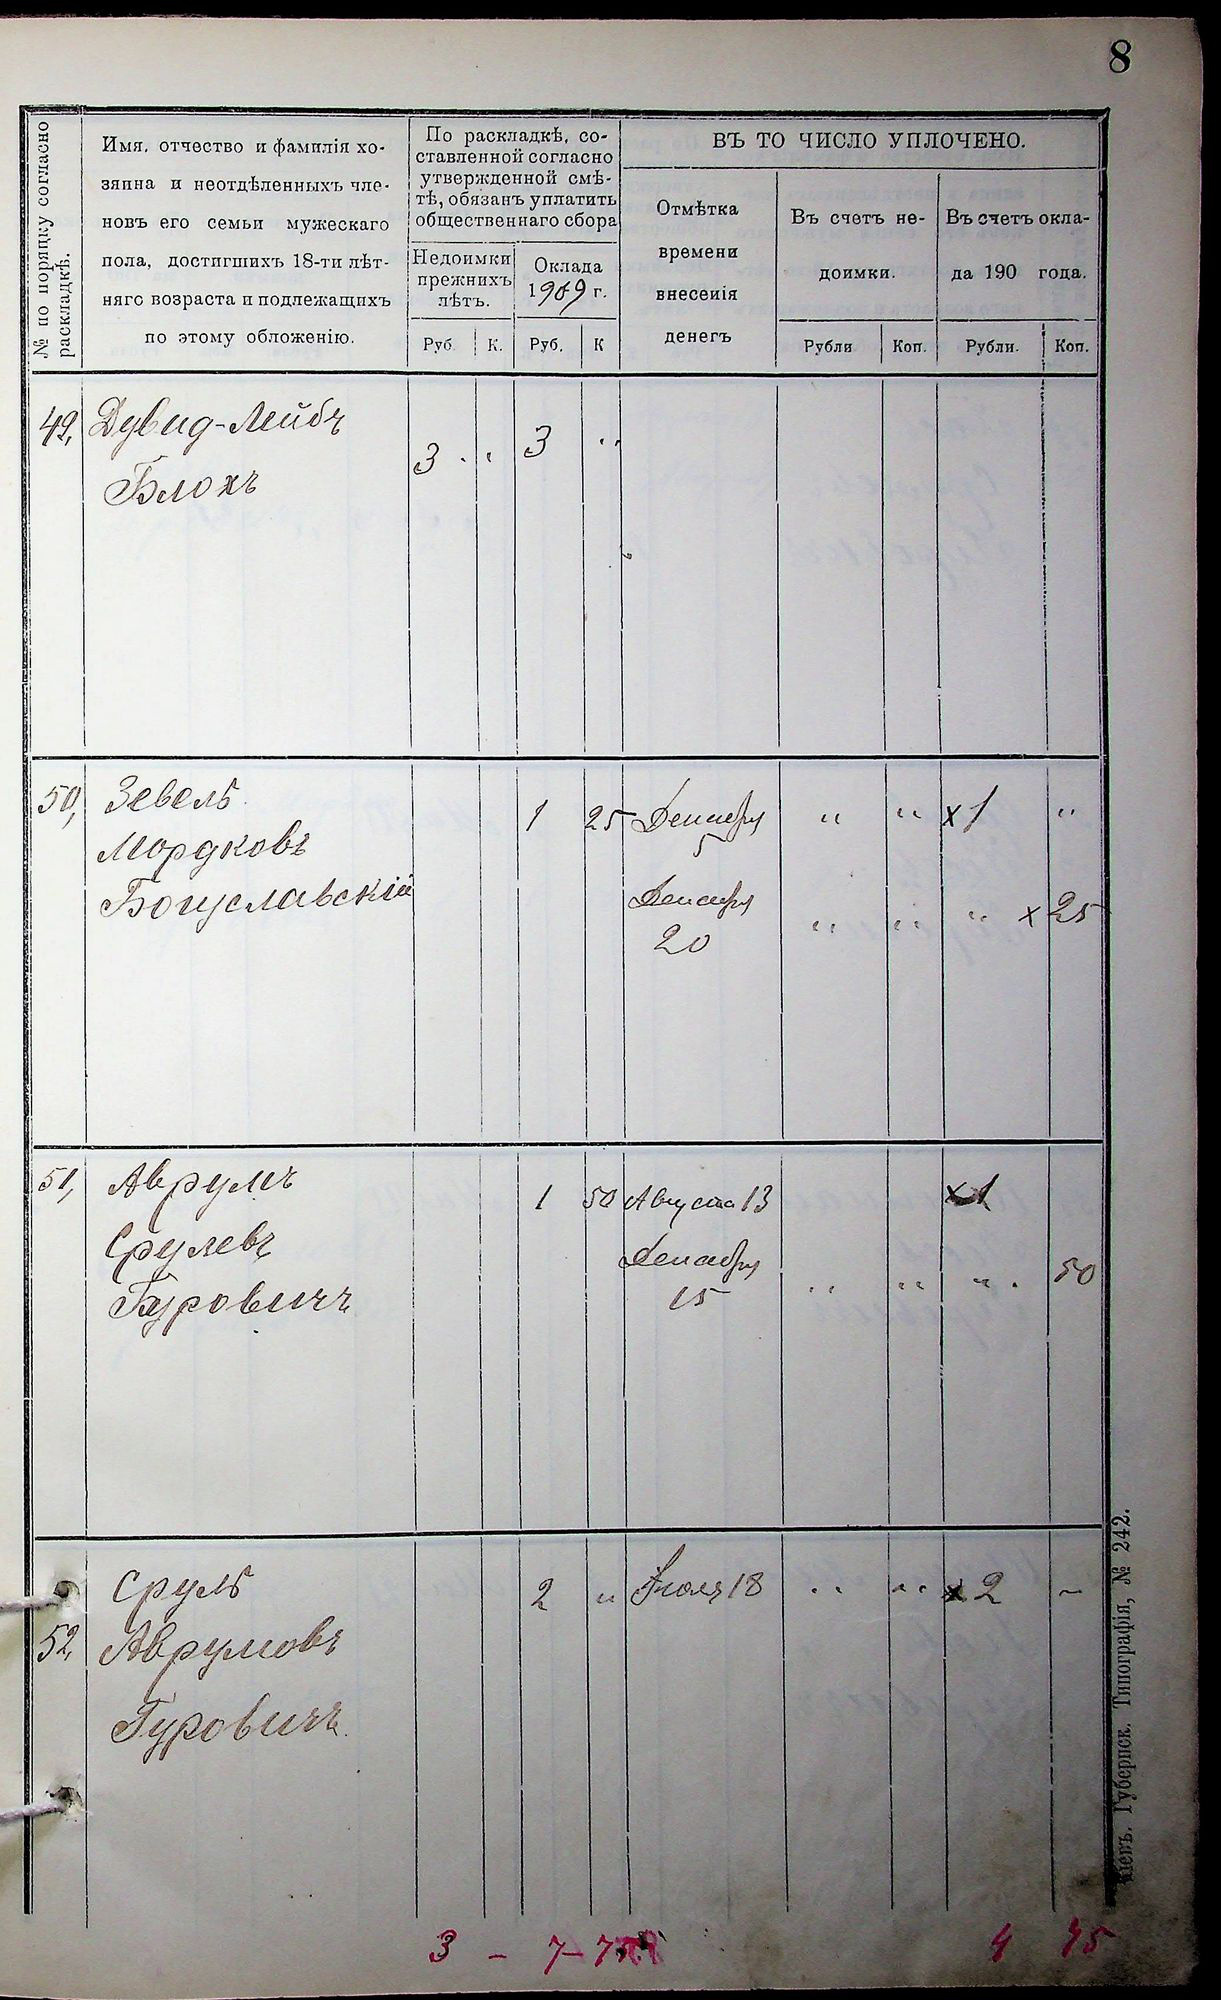 8
№ по поряцку согласно
раскладкѣ.
Имя, отчество и фамилія хо-
зяина и неотдѣленныхъ чле-
новъ его семьи мужескаго
пола, достигшихъ 18-ти лѣт-
няго возраста и подлежащихъ
по этому обложенію.
По раскладкѣ, со-
ставленной согласно
утвержденной смѣ-
тѣ, обязанъ уплатить
общественнаго сбора
Недоимки
прежнихъ
лѣтъ.
Оклада
1909 г.
Руб. К. Руб. К
ВЪ ТО ЧИСЛО УПЛОЧЕНО.
Отмѣтка
времени
внесенія
денегъ
Въ счетъ не-
доимки.
Въ счетъ окла-
да 190 года.
Рубли Коп. Рубли. Коп.
49, Дувид-Лейбъ 3 " 3 "
Блохъ
50, Зевель 1 25 Декабря " " х 1 "
Мордковъ 5
Богуславскій Декабря " " " х 25
20
51, Аврумъ 1 50 Августа 13 х 1
Срулевъ Декабря " " " 50
Гуровичъ 15
Сруль 2 " Іюля 18 " " х 2 ~
52, Аврумовъ
Гуровичъ.
3 - 7-75 4 75
Кіевъ. Губернск. Типографія, № 242.